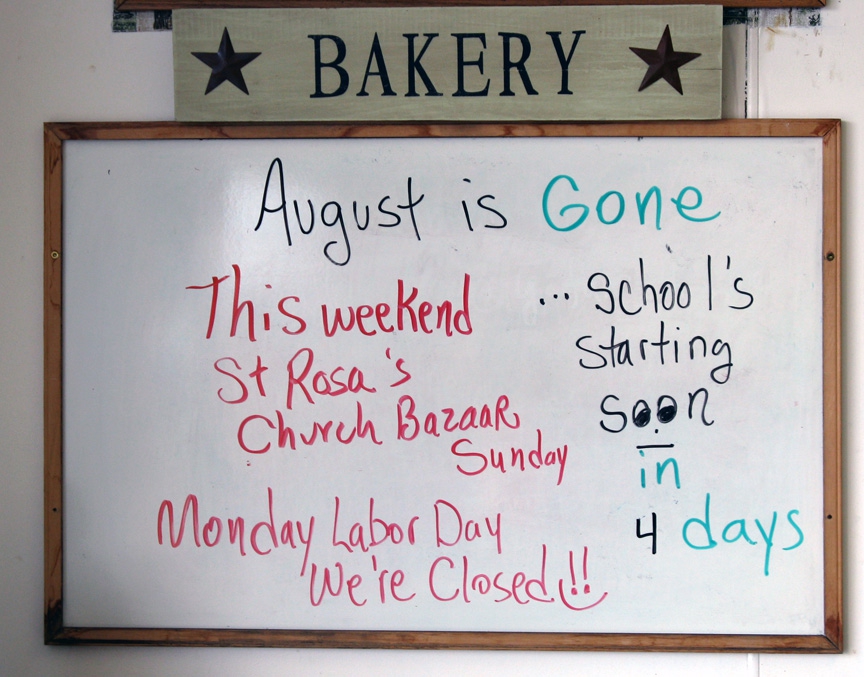 BAKERY
August is Gone
This weekend
St Rosa's
Church Bazaar
Sunday
Monday Labor Day
We're Closed!!
... school's
starting
soon
in
4 days